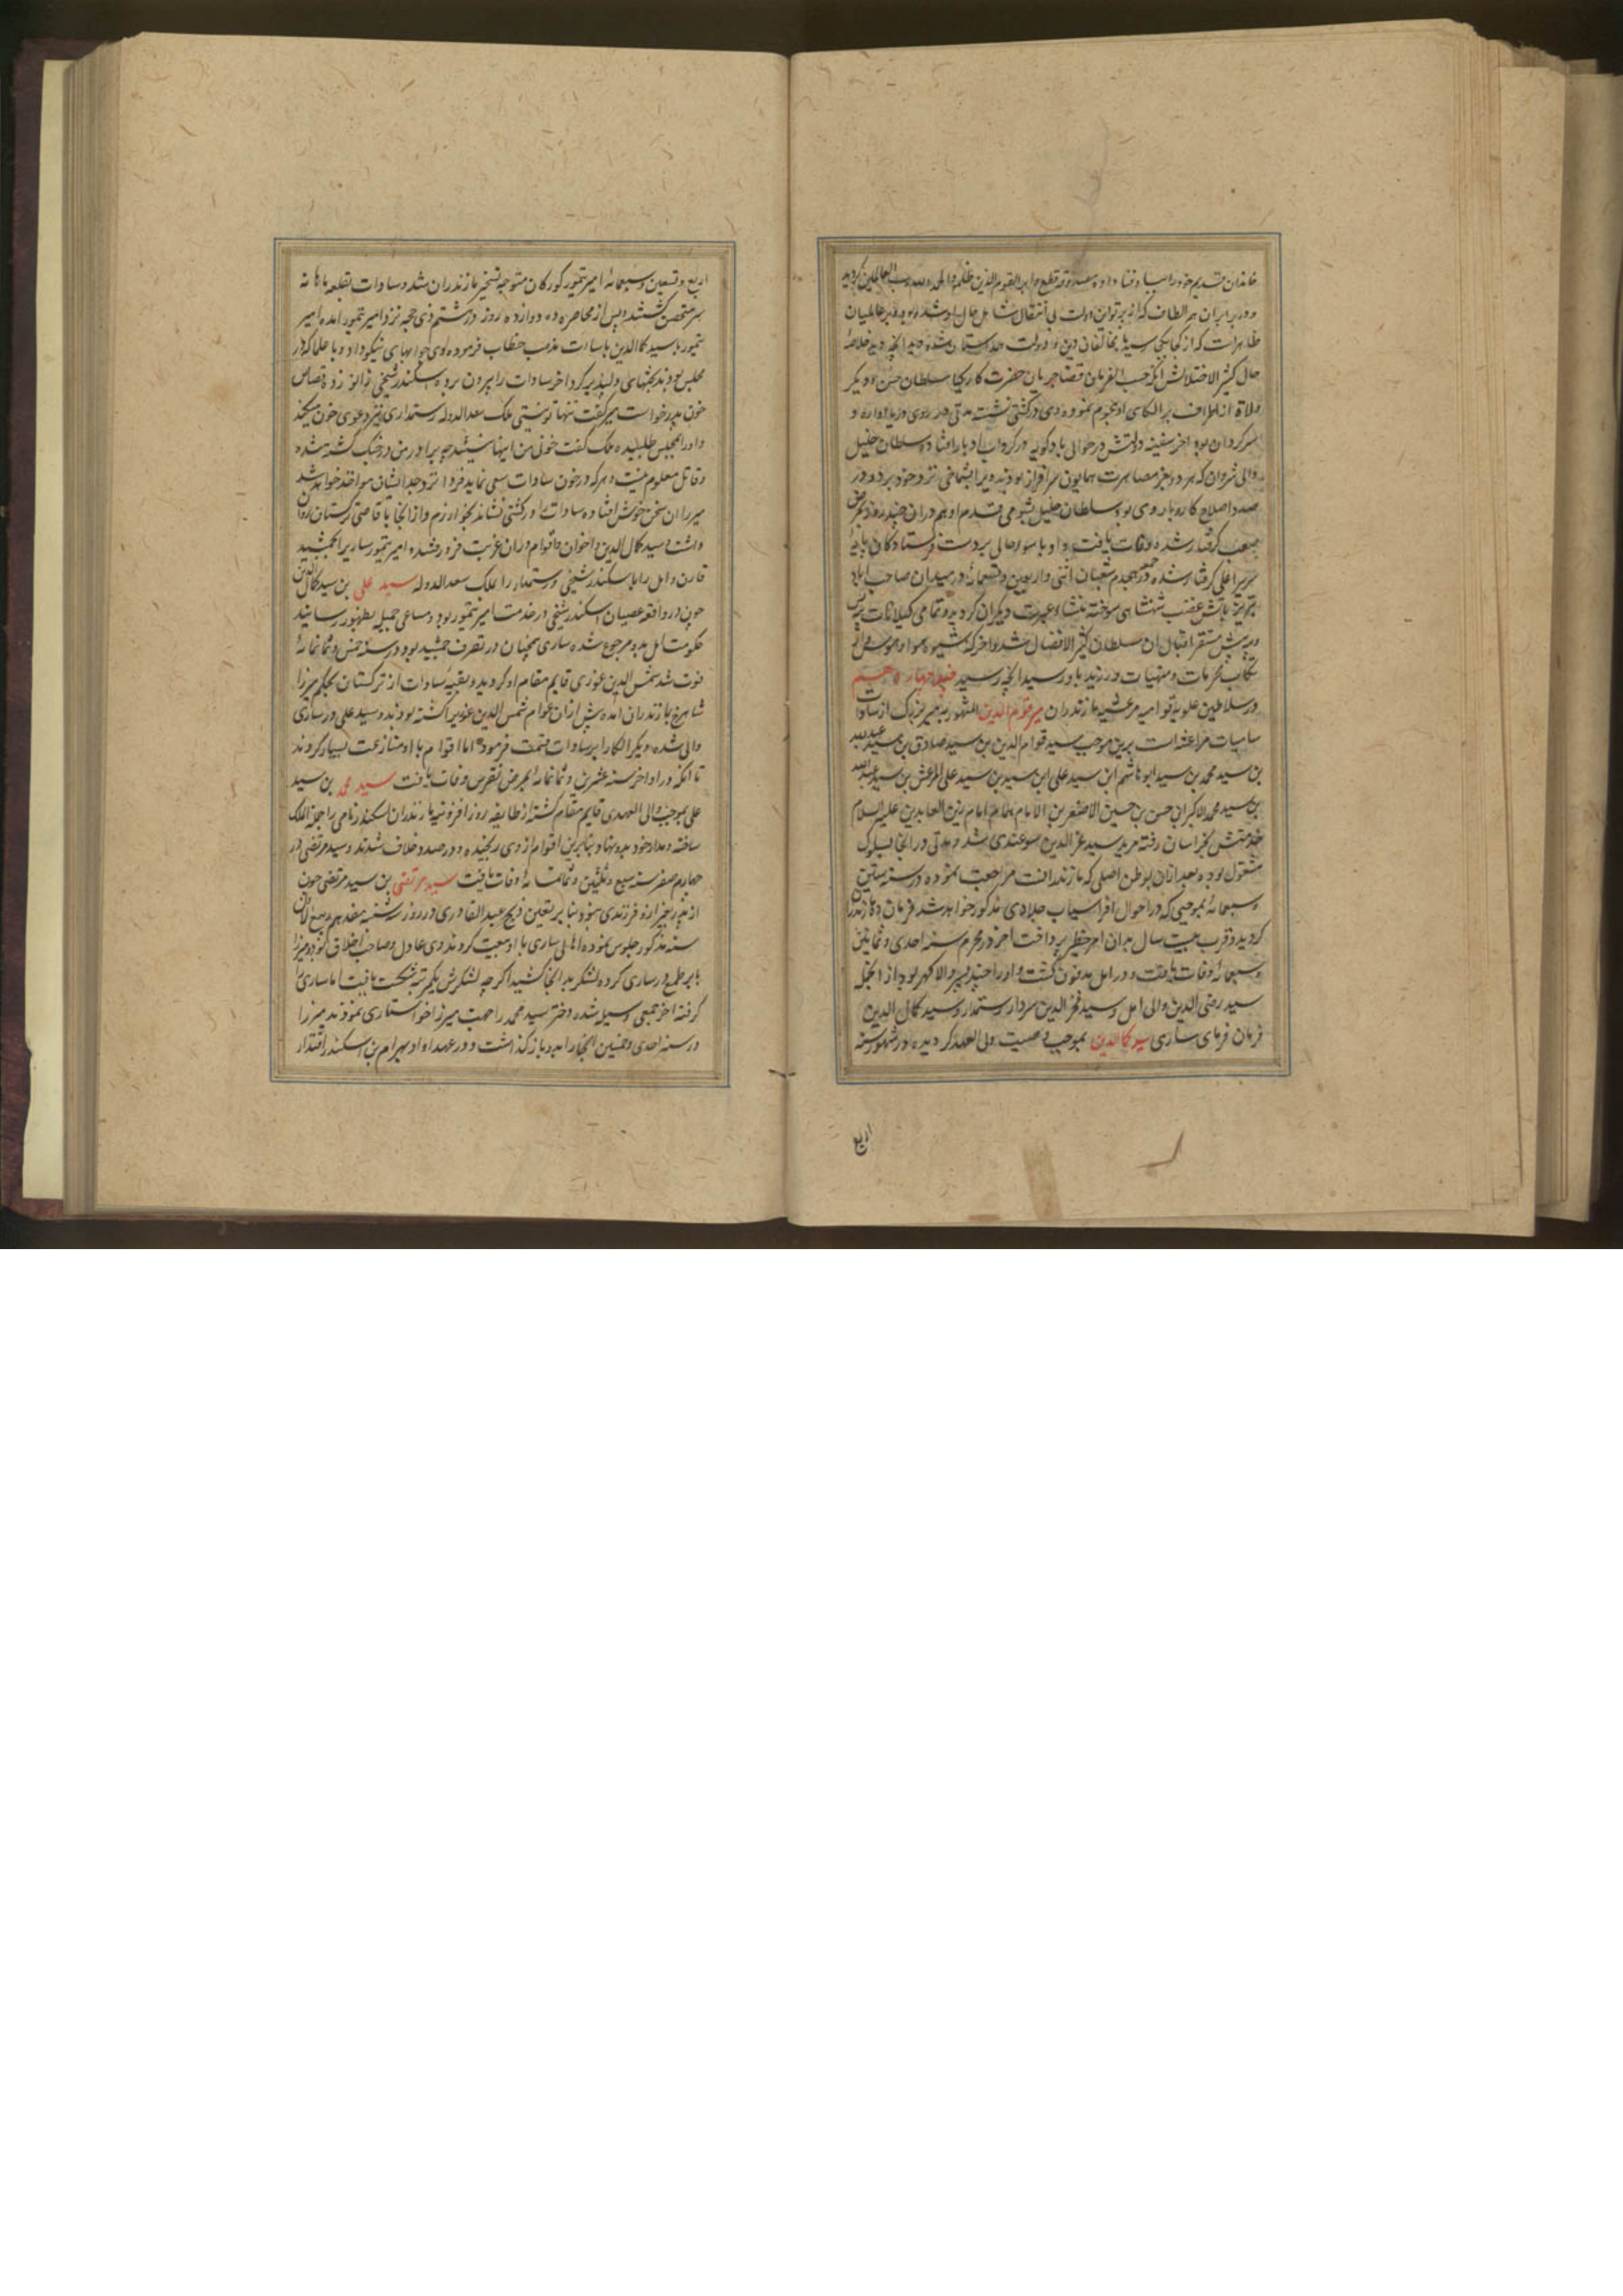 خاندان قدیم خود را بباد فنا داده مصدوقه فقطع دابر القوم الذین ظلموا والحمد لله رب العالمین گردید
و در برابر آن همه الطاف که از پرتو این دولت بی انتقال شامل حال او شده بود و بر عالمیان
ظاهر است که از کجا بکجا رسید با مخالفان دین و دولت همداستان شده دید آنچه دید خلاصهٔ
حال کثیر الاختلالش آنکه حسب الفرمان قضا جریان حضرت کارکیا سلطان حسن و دیگر
ولاة از اطراف بر الکای او هجوم نموده وی در کشتی نشسته مدتی در روی دریا آواره و
سرگردان بود آخر سفینه دولتش در حوالی بادکوبه در گرداب ادبار افتاده سلطان خلیل
والی شروان که هر دو بعز مصاهرت همایون سرافراز بودند ویرا بشماخی نزد خود برد و در
صدد اصلاح کار و بار وی بود سلطان خلیل بشومی قدم او هم در آن چند روز بمرض
صعب گرفتار شده وفات یافت و او با سوء حالی بر دست فرستادگان پایهٔ
سریر اعلی گرفتار شده در جمعه هجدهم شعبان اثنی و اربعین و تسعمائه در میدان صاحب آباد
تبریز بآتش غضب شهنشاهی سوخته منشاء عبرت دیگران گردید و تمامی گیلانات
سلطان کثیر الافضال شد و آخر که شیوه
تکاب محرمات و منهیات ورزید باو رسید آنچه رسید فصل چهارم از قسم
در سلاطین علویه قوامیه مرعشیه مازندران میر قوام الدین المشهور به میر بزرگ از سادات
سامیات مراعشه است برین موجب سید قوام الدین بن سید صادق بن سید عبد الله
بن سید محمد بن سید ابو هاشم ابن سید علی ابن سید بن سید علی المرعش بن سید عبد الله
بن سید محمد الاکبر ابن حسن بن حسین الاصغر بن الامام الهمام امام زین العابدین علیه السلام
خدمتش بخراسان رفته مرید سید عز الدین سوغندی شد و مدتی در آنجا بسلوک
مشغول بود و بعد از آن بوطن اصلی که مازندرانست مراجعت نموده در سنه ستین
و سبعمائه بموجبی که در احوال افراسیاب جلاوی مذکور خواهد شد فرمان ده مازندران
گردید و قرب بیست سال بدان امر خطیر پرداخت آخر در محرم سنه احدی و ثمانین
و سبعمائه وفات یافت و در آمل مدفون گشت و او را چند پسر والا گهر بود از آنجمله
سید رضی الدین والی آمل و سید فخر الدین سردار رستمدار و سید کمال الدین
فرمان فرمای ساری سید کمال الدین بموجب وصیت ولی العهد گردیده در شهور سنه
اربع
اربع و تسعین و سبعمائه امیر تیمور گورکان متوجه تسخیر مازندران شد و سادات بقلعه ماهانه
سر متحصن گشتند و پس از محاصره ده دوازده روز در ششم ذی حجه نزد امیر تیمور آمده امیر
تیمور با سید کمال الدین باسات مذهب خطاب فرمود و وی جوابهای نیکو داد و با علما که در
مجلس بودند بحثهای دلپذیر کرد آخر سادات را بیرون برده سکندر شیخی زانو زد و قصاص
خون پدر خواست میر گفت تنها تو نیستی ملک سعد الدوله رستمداری نیز دعوی خون میکند
و او را بمجلس طلبیده ملک گفت خونی من اینها نیستند چه برادر من در جنگ کشته شده
و قاتل معلوم نیست و هر که در خون سادات سعی نماید فردا نزد جد ایشان مواخذ خواهد شد
میر را آن سخن خوش افتاده سادات را در کشتی نشاند بخوارزم و از آنجا باقاصی ترکستان روان
داشت و سید کمال الدین و اخوان و اقوام در آن غربت فرو رفتند و امیر تیمور ساری را بجمشید
قارن و آمل را باسکندر شیخی و رستمدار را بملک سعد الدوله سید علی بن سید کمال الدین
چون در واقعه عصیان اسکندر شیخی در خدمت امیر تیمور بود و مساعی جمیله بظهور رسانید
حکومت آمل بدو مرجوع شده ساری همچنان در تصرف جمشید بود و در سنه خمس و ثمانمائه
فوت شد شمس الدین غوری قایم مقام او گردید و بقیه سادات از ترکستان بحکم میرزا
شاهرخ بمازندران آمده پیش از آن عوام شمس الدین غوری را کشته بودند و سید علی در ساری
والی شده و دیگر الکا را بر سادات قسمت فرمود اما اقوام با او منازعت بسیار کردند
تا آنکه در اواخر سنه عشرین و ثمانمائه بمرض نقرس وفات یافت سید محمد بن سید
علی بموجب ولی العهدی قایم مقام گشته از طایفه روز افزونیه مازندران اسکندر نامی را جملة الملک
ساخته و مدار خود بدو نهاد و بنا برین اقوام از وی رنجیده و در صدد خلاف شدند و سید مرتضی در
چهارم صفر سنه سبع و ثلثین و ثمانمائه وفات یافت سید مرتضی بن سید مرتضی چون
از پدر بغیر از او فرزندی نبود بنا بر تعین ذبیح عبد القادری در روز سه شنبه هفدهم ربیع الاول
سنه مذکور جلوس نموده اهالی ساری با او بیعت کردند وی عادل و صاحب اخلاق بود و میرزا
بابر طمع در ساری کرده لشکر بدانجا کشید اگر چه لشکرش یکمرتبه شکست یافت اما ساری را
گرفته آخر جمعی وسیله شده دختر سید محمد را جهت میرزا خواستاری نمودند میرزا
در سنه احدی و خمسین آنجا را بدو باز گذاشت و در عهد او او بهرام بن اسکندر اقتدار